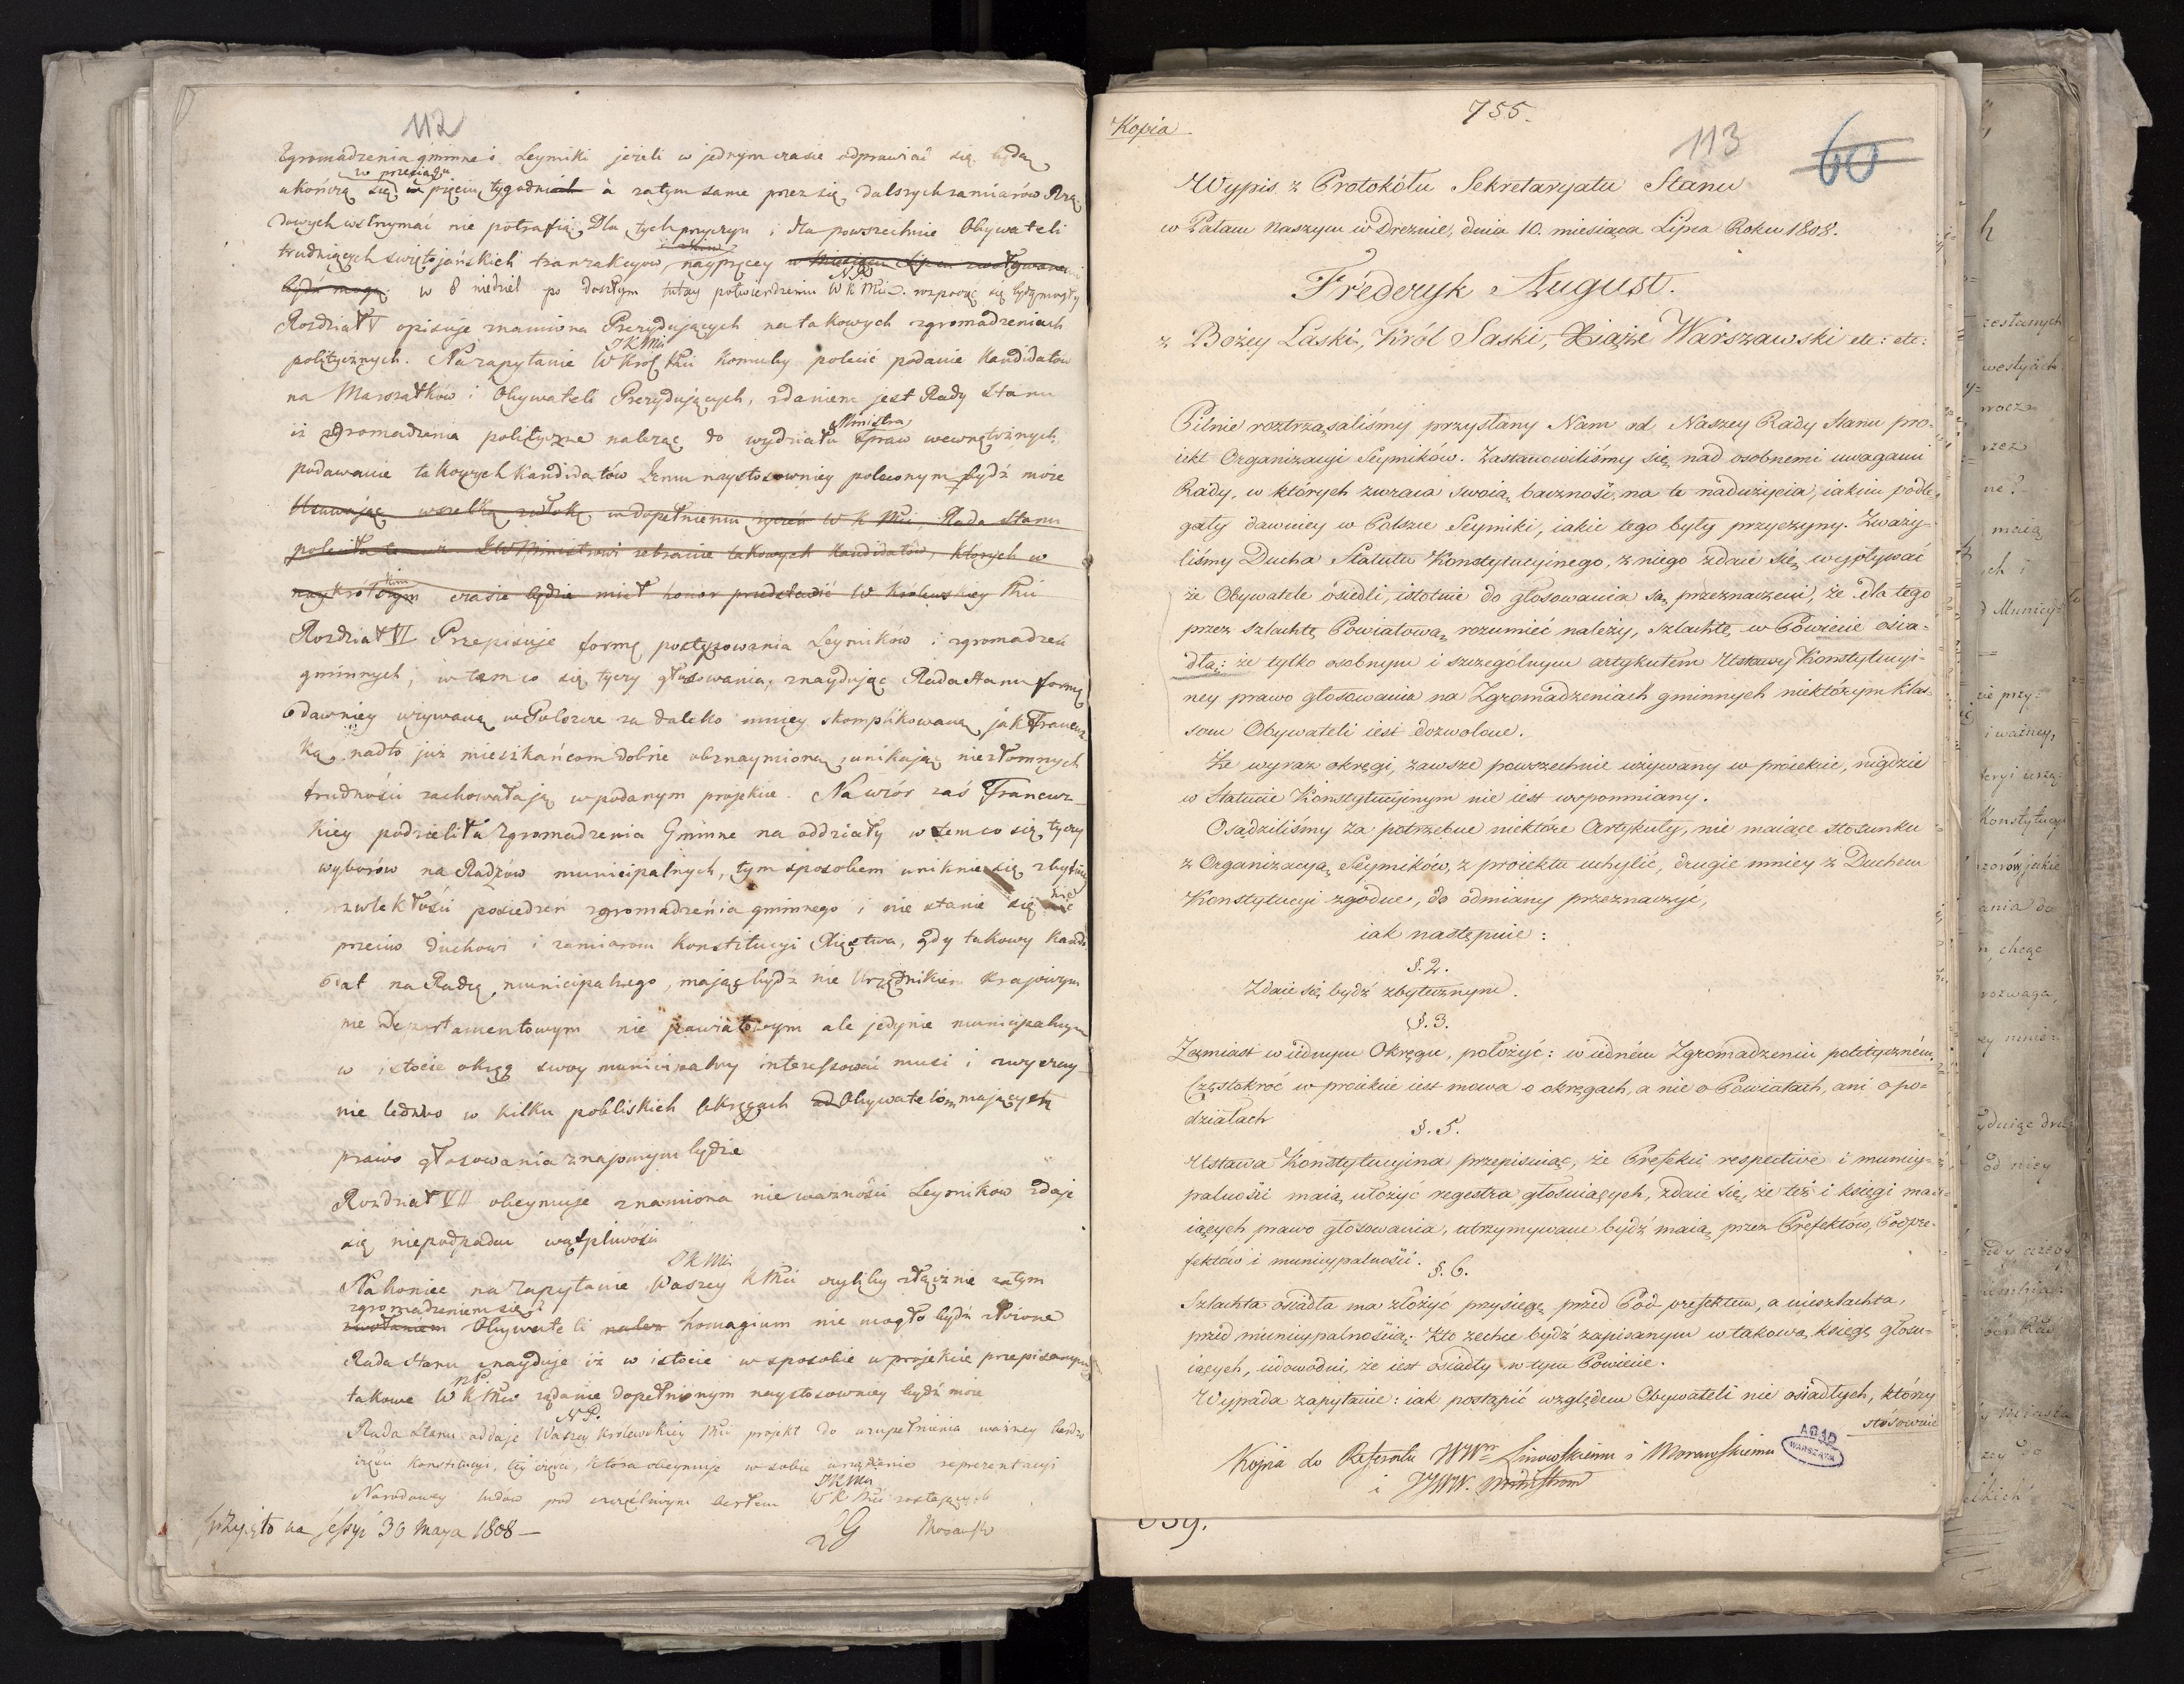 112
Zgromadzenia gminne i Seymiki jeżeli w jednym czasie odprawiać się będą
w przeciągu
ukończą się w pięciu tygodniach a zatym same przez się dalszych zamiarów Rzą
dowych wstrzymać nie potrafią. Dla tych przyczyn i dla powszechnie Obywateli
trudniących świętojańskich tranzakcyów, nayprędzey w Miesiącu Lipcu zwoływane
NP
bydź mogą. w 8 niedziel po doszłym tutay potwierdzeniu W K Mci rozpocząć się będą mogły
Rozdział V opisuje znamiona Prezydujących na takowych zgromadzeniach
JKMci
politycznych. Na zapytanie W Krol Mci komuby polecić podanie Kandidatów
na Marszałków i Obywateli Prezydujących, zdaniem jest Rady Stanu
Ministra
iż zgromadzenia polityczne należąc do wydziału Spraw wewnętrznych,
podawanie takowych Kandidatów Jemu naystosowniey poleconym bydź może
Usuwając wszelką zwłokę w dopełnieniu życzeń W K Mci, Rada Stanu
poleciła JW Ministrowi zebranie takowych Kandidatów, których w
naykrótszym czasie będzie miał honor przedstawić W Królewskiey Mci
Rozdział VI Przepisuje formę postępowania Seymików i zgromadzeń
gminnych, w tem co się tyczy głosowania; znaydując Rada Stanu formę
dawniey używaną w Polszcze za daleko mniey skomplikowaną jak Francuz
ką, nadto już mieszkańcom dobrze obznaymioną, unikając niezłomnych
trudności zachowała ją w podanym projekcie. Na wzór zaś Francuz-
kiey podzieliła Zgromadzenia Gminne na oddziały w tem co się tyczy
wyborów na Radzców municipalnych, tym sposobem uniknie się zbytniey
rozwlekłości posiedzeń zgromadzenia gminnego i nie stanie się nic
przeciw duchowi i zamiarom Konstitucyi Xięstwa, gdy takowy Kandi
dat na Radzcę municipalnego, mając bydź nie Urzędnikiem krajowym
nie Departamentowym nie powiatowym ale jedynie municipalnym
w istocie okrąg swoy municipalny interessować musi i zwyczay
nie ledwo w kilku pobliskich okręgach Obywatelom mających
prawo głosowania znajomym będzie
Rozdział VII obeymuje znamiona nieważności Seymików zdaje
się niepodpadać wątpliwości
JKMci
Nakoniec na zapytanie Waszey K Mci czyliby złącznie z tym
zgromadzeniem się
zwołaniem Obywateli homagium nie mogło bydź złożone
Rada Stanu znayduje iż w istocie w sposobie w projekcie przepisanym
NP.
takowe W K Mci żądanie dopełnionym naystosowniey bydź może
NP.
Rada Stanu oddaje Waszey Królewskiey Mci projekt do uzupełnienia ważney bardzo
części Konstitucyi, tey części, która obeymuje w sobie urządzenie reprezentacyi
JKMci
Narodowey ludów pod szczęśliwym berłem W K Mci zostających
przyięto na Sessyi 30 Maya 1808 —
755.
Kopia
113
60
Wypis z Protokółu Sekretaryatu Stanu
w Pałacu Naszym w Dreznie, dnia 10. miesiąca Lipca Roku 1808.
Fréderyk August.
z Bożey Łaski, Król Saski, Xiąże Warszawski etc: etc:
Pilnie roztrząsaliśmy przysłany Nam od Naszey Rady Stanu pro-
iekt Organizacyi Seymików. Zastanowiliśmy się nad osobnemi uwagami
Rady, w których zwraca swoią baczność na te nadużycia, iakim podle-
gały dawniey w Polszcze Seymiki, iakie tego były przyczyny. Zważy-
liśmy Ducha Statutu Konstytucyjnego, z niego zdaie się wypływać
że Obywatele osiedli, istotnie do głosowania są przeznaczeni, że dla tego
przez szlachtę Powiatową rozumieć należy, szlachtę w Powiecie osia-
dłą: że tylko osobnym i szczególnym artykułem Ustawy Konstytucyi-
ney prawo głosowania na Zgromadzeniach gminnych niektórym klas-
som Obywateli iest dozwolone.
Że wyraz okręgi, zawsze powszechnie używany w proiekcie, nigdzie
w Statucie Konstytucyjnym nie iest wspomniany.
Osądziliśmy za potrzebne niektóre Artykuły, nie maiące stosunku
z Organizacyą Seymików, z proiektu uchylić, drugie mniey z Duchem
Konstytucyi zgodne, do odmiany przeznaczyć,
iak następuie:
§. 2.
Zdaie się bydź zbytecznym.
§. 3.
Zamiast w iednym Okręgu, położyć: w iedném Zgromadzeniu polityczném.
Częstokroć w proiekcie iest mowa o okręgach, a nie o Powiatach, ani o po-
działach
§. 5.
Ustawa Konstytucyjna przepisuiąc, że Prefekci respective i municy-
palności maią ułożyć regestra głosuiących, zdaie się, że też i księgi ma-
iących prawo głosowania, utrzymywane bydź maią przez Prefektów, Podpre-
fektów i municypalności.
§. 6.
Szlachta osiadła ma złożyć przysięgę przed Pod-prefektem, a nieszlachta,
przed municypalnością. Kto zechce bydź zapisanym w takową księgę głosu-
iących, udowodni, że iest osiadły w tym Powiecie.
Wypada zapytanie: iak postąpić względem Obywateli nie osiadłych, którzy
stosownie
Kopia do Referatu WWm Linowskiemu i Morawskiemu
i JJWW. Ministrom
AGAD
WARSZAWA